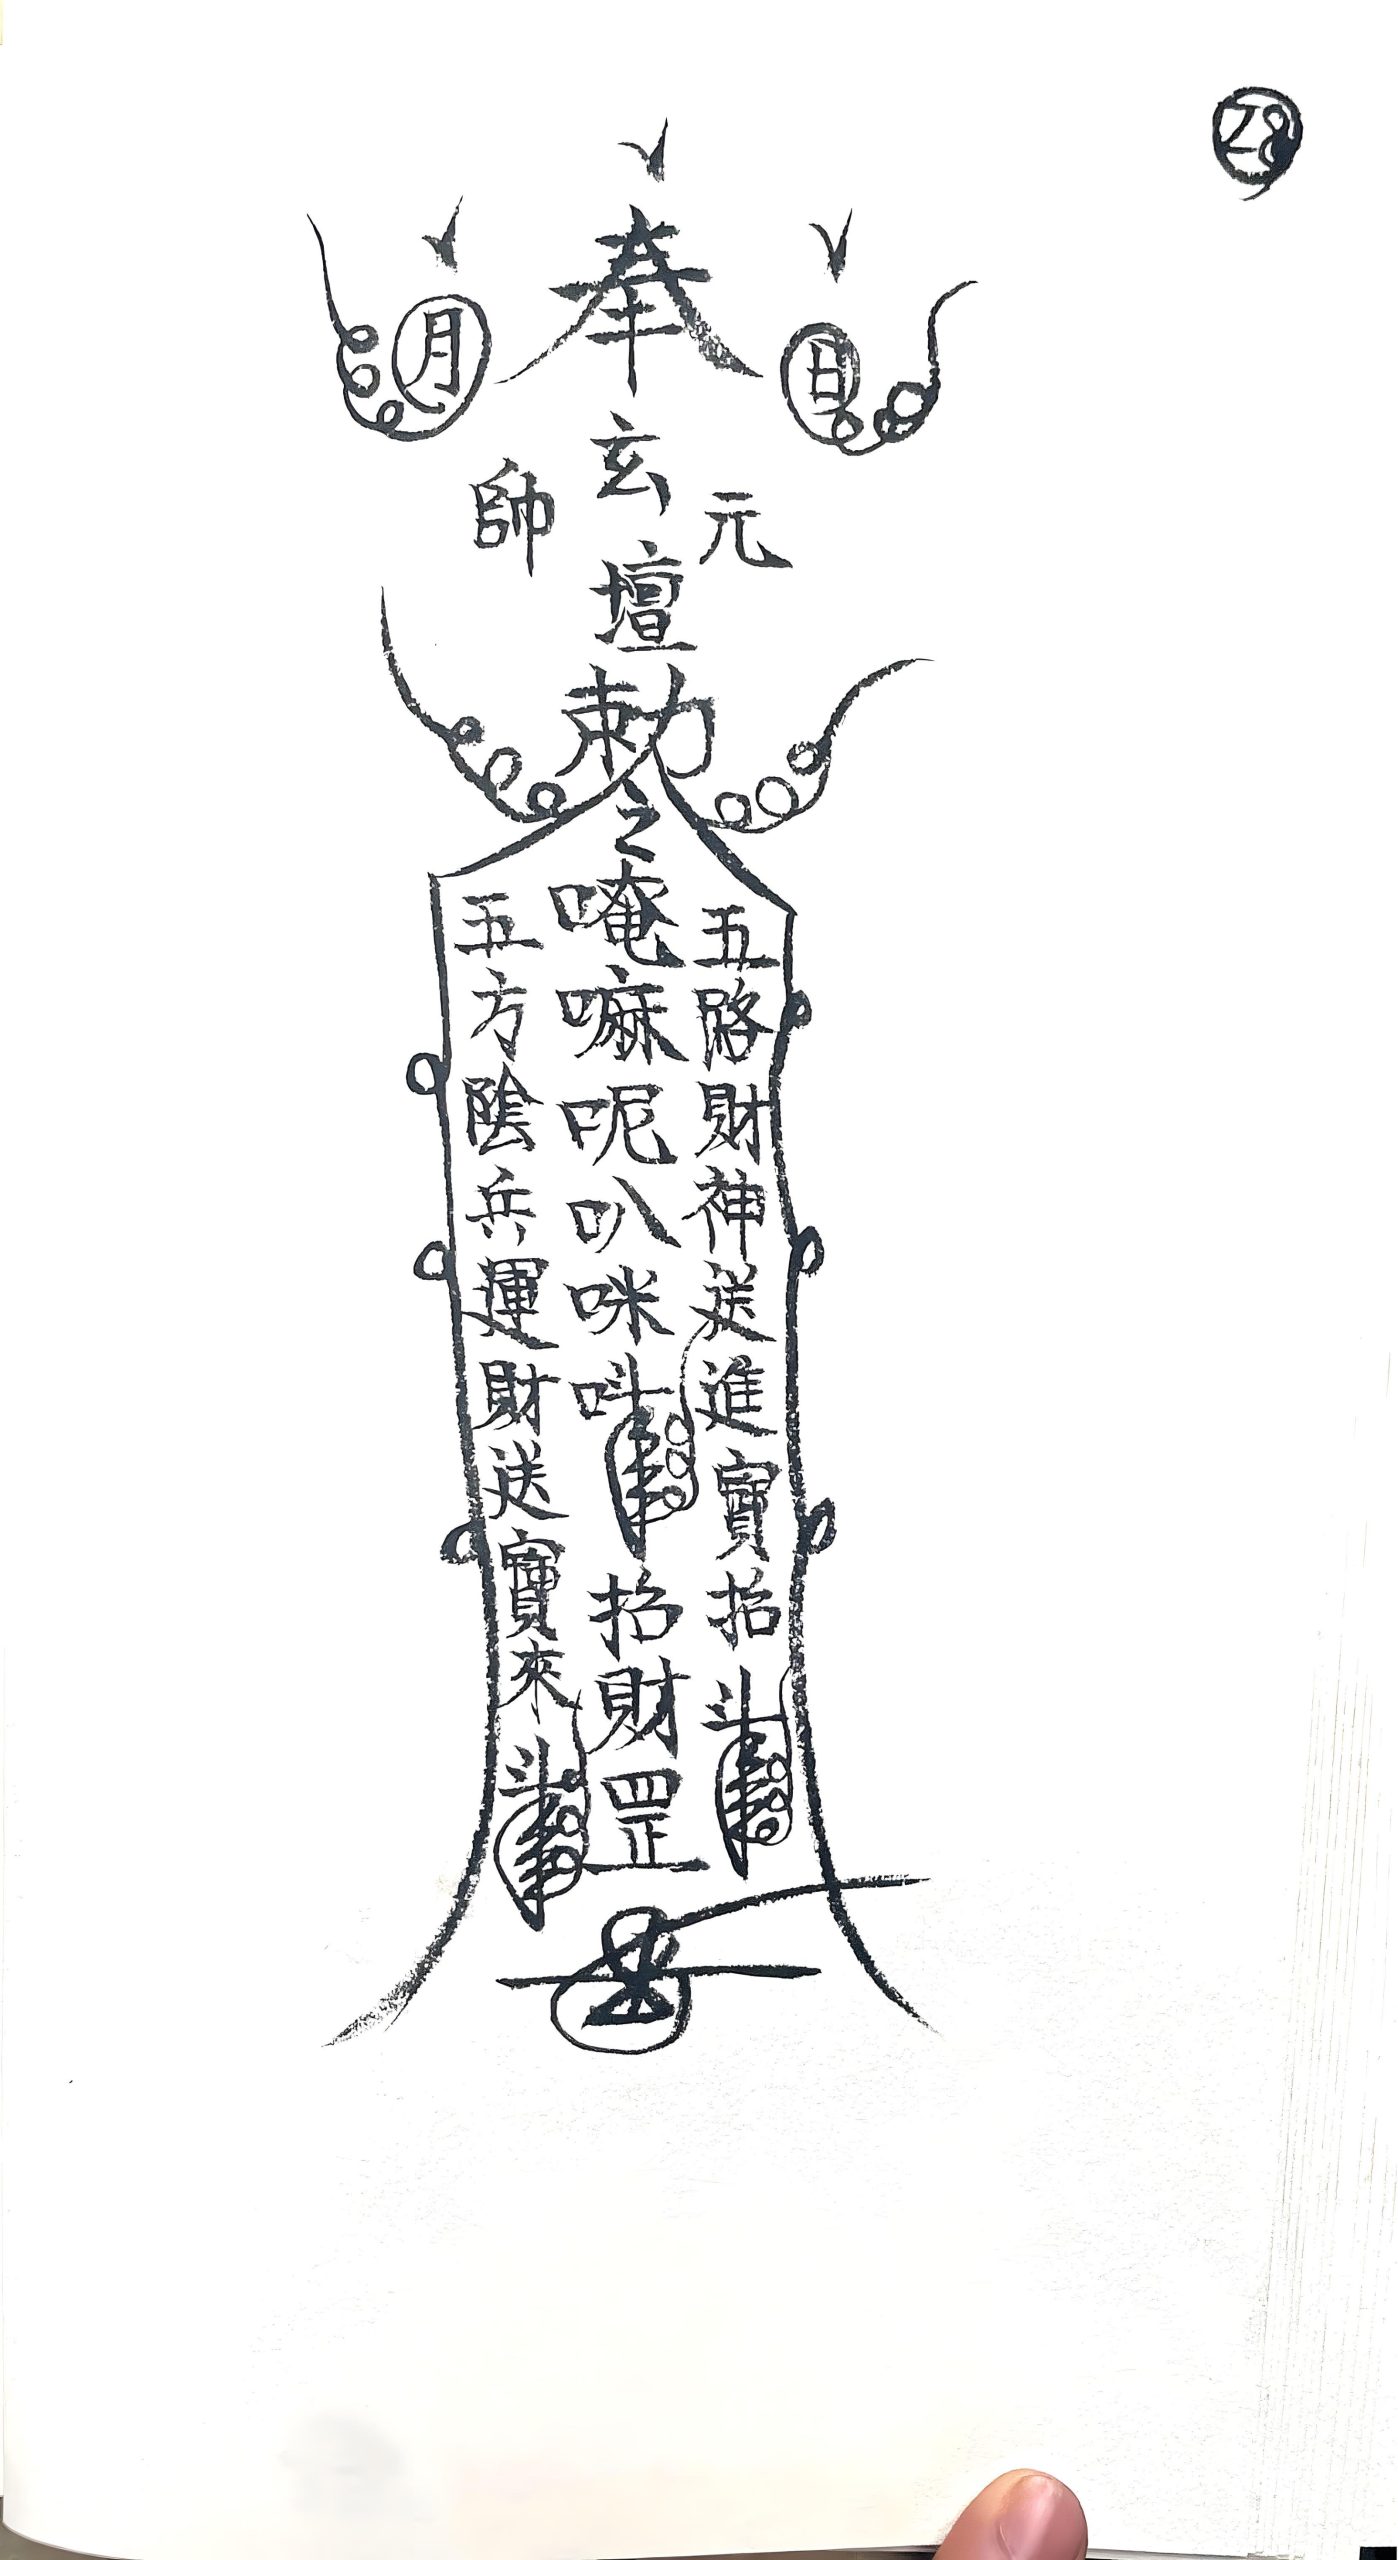 28
奉
日
月
玄壇
元
帥
勅之唵嘛呢叭咪吽
招財罡
五路財神送進寶招
五方陰兵運財送寶來